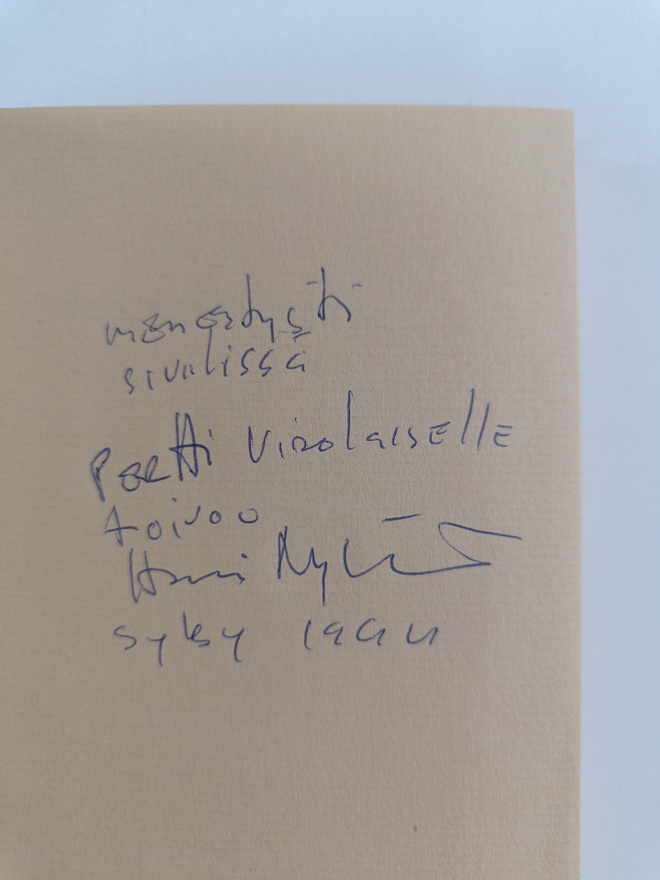 menestystä
siviilissä
Pertti Virolaiselle
toivoo
syksy 1994